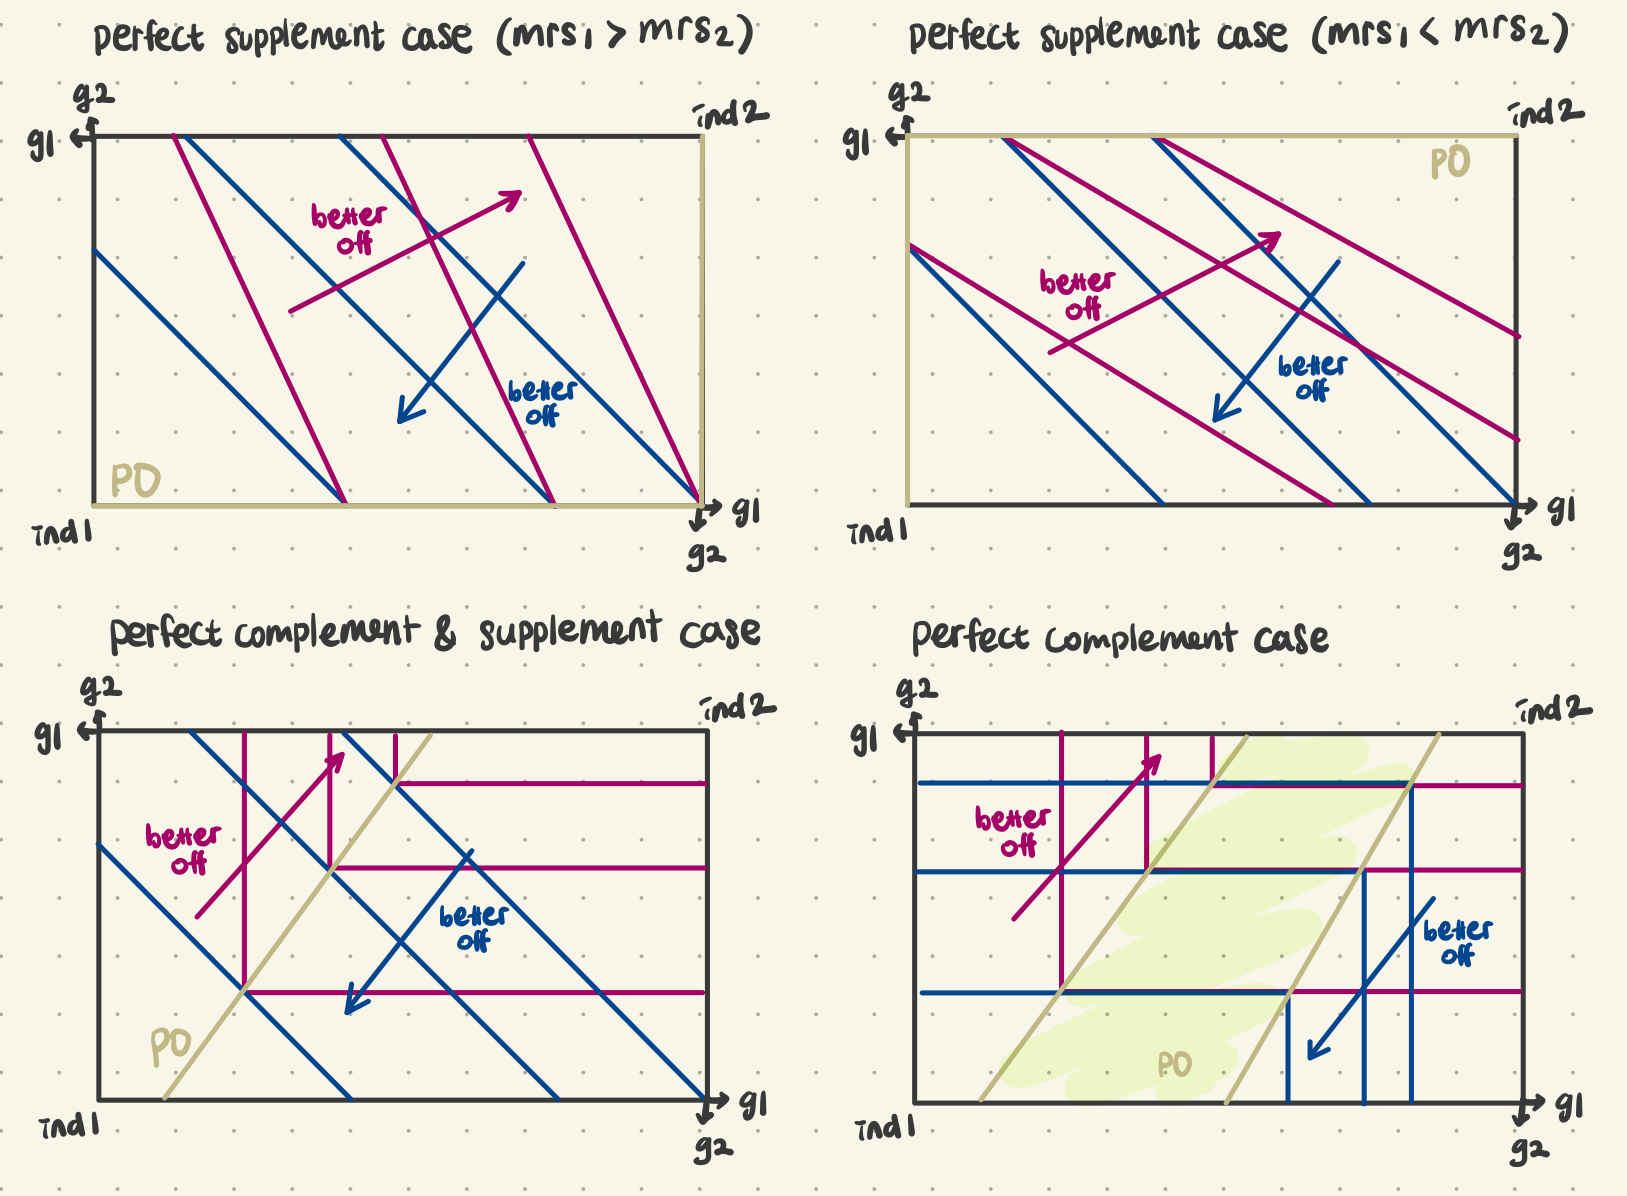 perfect supplement case (mrs1 > mrs2)
g2
g1
ind2
better
off
better
off
PO
ind1
g1
g2
perfect supplement case (mrs1 < mrs2)
g2
g1
ind2
PO
better
off
better
off
ind1
g1
g2
perfect complement & supplement case
g2
g1
ind2
better
off
better
off
PO
ind1
g1
g2
perfect complement case
g2
g1
ind2
better
off
better
off
PO
ind1
g1
g2